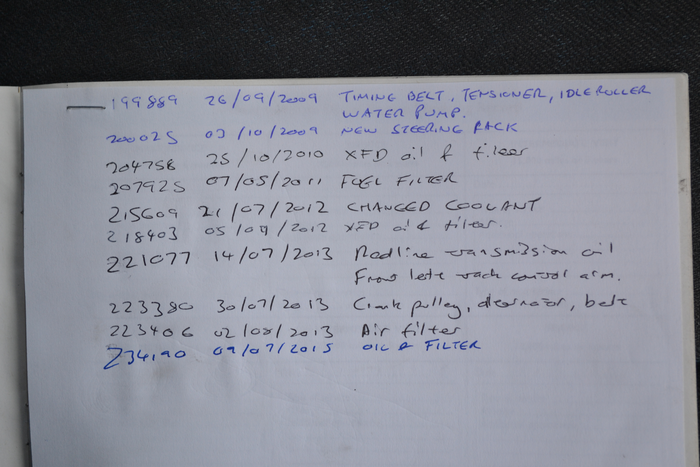 199889 26/09/2009 TIMING BELT, TENSIONER, IDLEROLLER
WATER PUMP.
200025 03/10/2009 NEW STEERING RACK
204758 25/10/2010 XFD oil & filter
207925 07/05/2011 FUEL FILTER
215609 21/07/2012 CHANGED COOLANT
218403 05/09/2012 XFD oil & filter.
221077 14/07/2013 Redline transmission oil
Front left track control arm.
223380 30/07/2013 Crank pulley, alternator, belt
223406 02/08/2013 Air filter
234190 09/07/2015 OIL & FILTER